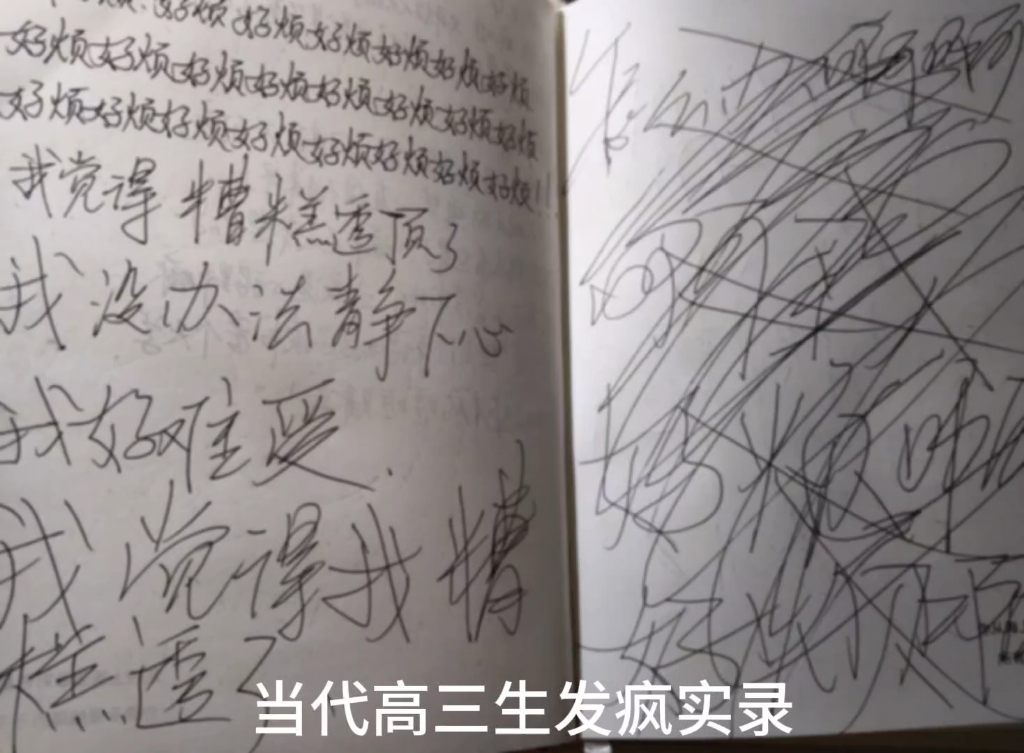 烦好烦好烦好烦好烦好烦好烦
好烦好烦好烦好烦好烦好烦好烦好烦
好烦好烦好烦好烦好烦好烦好烦好烦!!
我觉得糟糕透顶了
我没办法静下心
我好难受.
我觉得我糟
糕透了
怎么办啊啊啊
好烦啊
当代高三生发疯实录